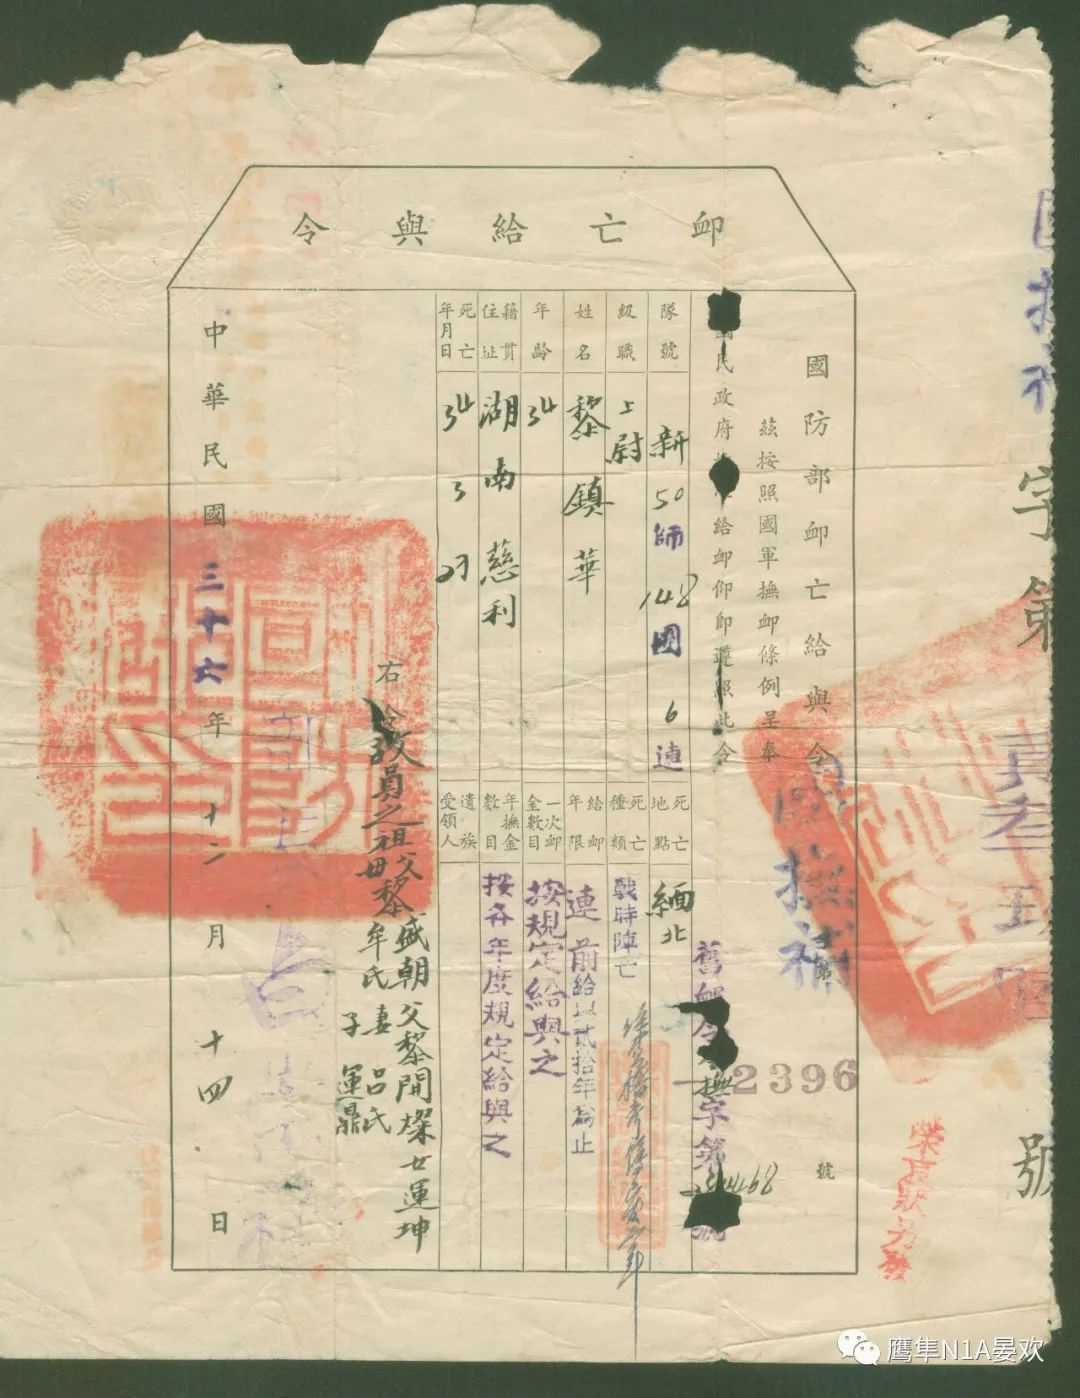 卹亡給與令
國防部卹亡給與令
字第
號
茲按照國軍撫卹條例呈奉
國民政府
給卹仰即遵照此令
第
2396
號
舊卹令
撫字第
號
隊號
新50師148團6連
死亡地點
緬北
級職
上尉
死亡種類
戰時陣亡
姓名
黎鎮華
給卹年限
連前給以貳拾年為止
年齡
34
一次卹金數目
按規定給與之
籍貫住址
湖南慈利
年撫金數目
按各年度規定給與之
死亡年月日
34 3 27
遺族受領人
右令故員之祖父黎盛朝 父黎開燦 女運坤
母牟氏 妻呂氏
子運鼎
中華民國三十六年十二月十四日
榮哀狀另發
鹰隼N1A晏欢